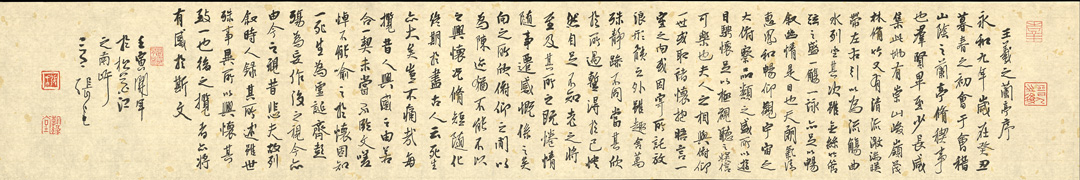 王羲之蘭亭序
永和九年歲在癸丑
暮春之初會于會稽
山陰之蘭亭脩稧事
也羣賢畢至少長咸
集此地有崇山峻嶺茂
林脩竹又有清流激湍暎
帶左右引以為流觴曲
水列坐其次雖無絲竹管
弦之盛一觴一詠亦足以暢
叙幽情是日也天朗氣清
惠風和暢仰觀宇宙之
大俯察品類之盛所以遊
目騁懷足以極視聽之娛信
可樂也夫人之相與俯仰
一世或取諸懷抱晤言一
室之內或因寄所託放
浪形骸之外雖趣舍萬
殊靜躁不同當其欣
於所遇暫得於己快
然自足不知老之將
至及其所之既惓情
隨事遷感慨係之矣
向之所欣俯仰之間以
為陳迹猶不能不以
之興懷況脩短隨化
終期於盡古人云死生
亦大矣豈不痛哉每
攬昔人興感之由若
合一契未嘗不臨文嗟
悼不能喻之於懷固知
一死生為虛誕齊彭
殤為妄作後之視今亦
由今之視昔悲夫故列
叙時人錄其所述雖世
殊事異所以興懷其
致一也後之攬者亦將
有感於斯文
壬寅開年
於松花江
之南岸